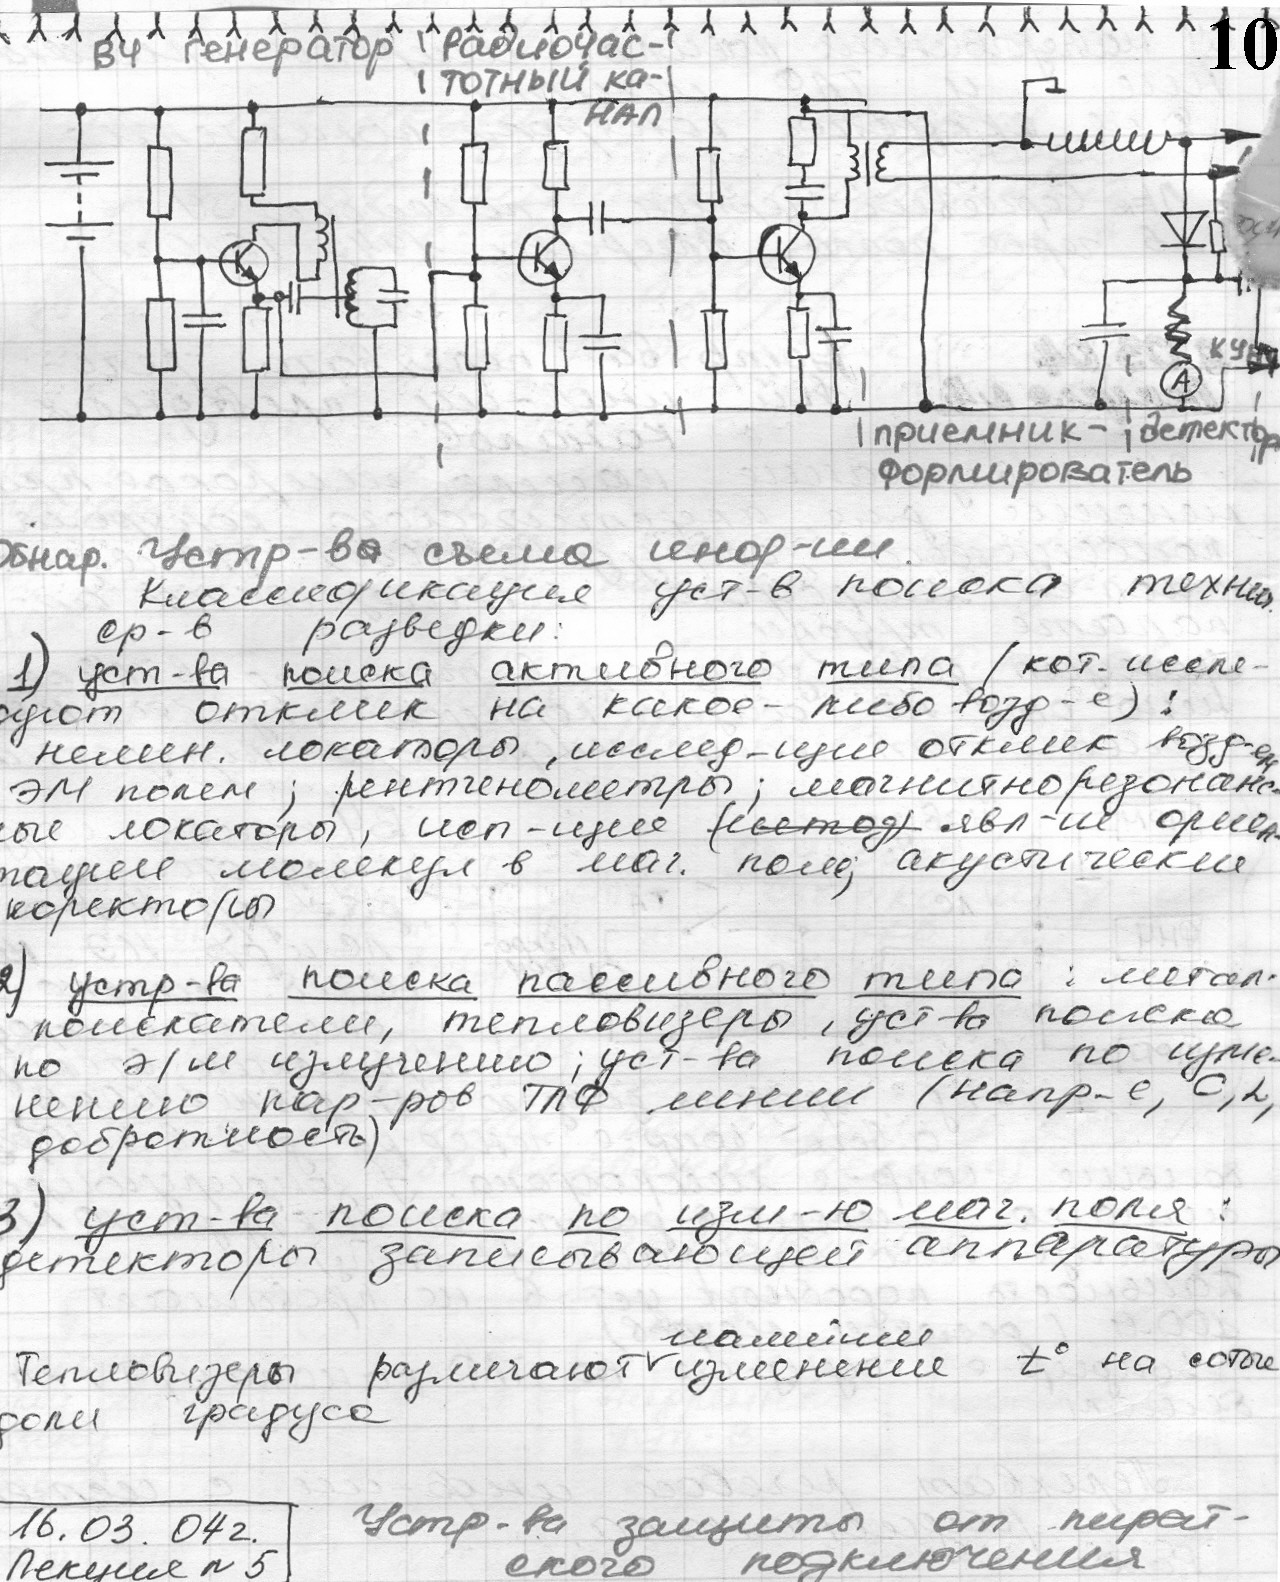 10
ВЧ генератор
Радиочас-
тотный ка-
нал
А
КУ
приемник-
формирователь
детектор
Обнар. Устр-ва съема инф-ии
Классификация уст-в поиска технич.
ср-в разведки:
1) уст-ва поиска активного типа (кот. иссле-
дуют отклик на какое-либо возд-е):
нелин. локаторы, исслед-щие отклик возд-ея
ЭМ полем; рентгенометры; магниторезонанс-
ные локаторы, исп-щие (метод) явл-ие ориен-
тации молекул в маг. поле; акустические
коректоры
2) устр-ва поиска пассивного типа: метал-
поискатели, тепловизеры, уст-ва поиска
по э/м излучению; уст-ва поиска по изме-
нению пар-ров ТЛФ линии (напр-е, C, L,
добротность)
3) уст-ва поиска по изм-ю маг. поля:
детекторы записывающей аппаратуры
малейшие
Тепловизеры различают изменение t° на сотые
доли градуса
16.03.04г.
Лекция N 5
Устр-ва защиты от пират-
ского подключения